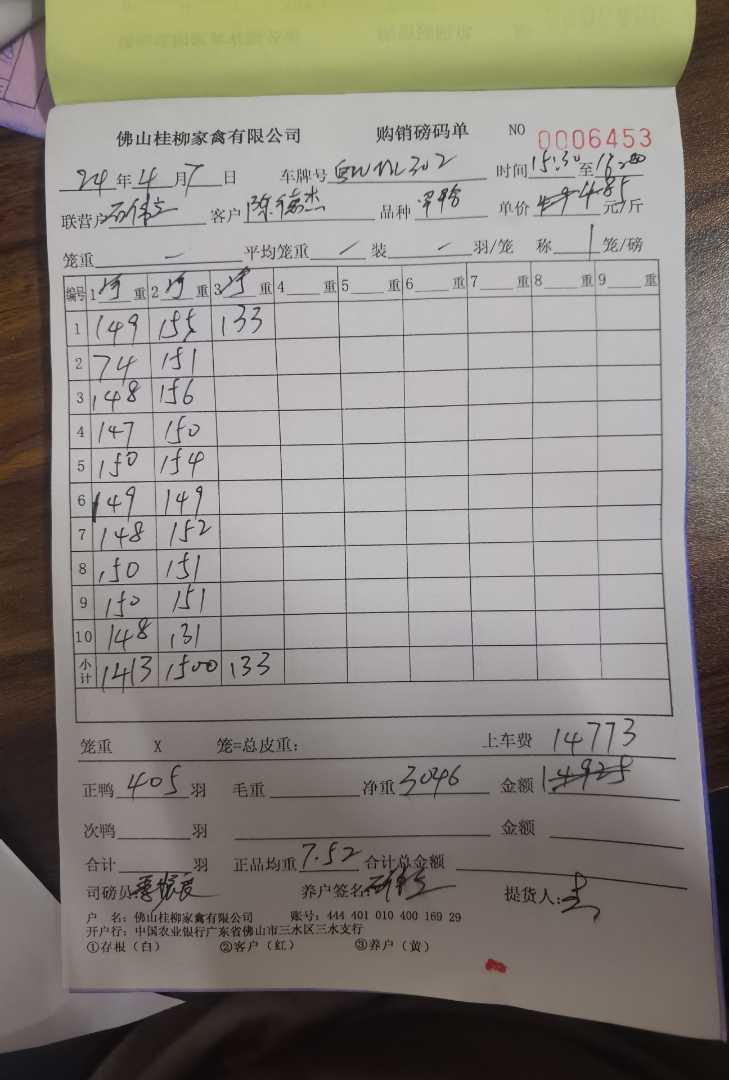 佛山桂柳家禽有限公司 购销磅码单 NO 0006453
24 年 4 月 7 日 车牌号 时间 15:30 至
联营户 客户 陈德杰 品种 单价 4.85 元/斤
笼重 — 平均笼重 / 装 — 羽/笼 称 1 笼/磅
编号 1 净 重 2 净 重 3 净 重 4 重 5 重 6 重 7 重 8 重 9 重
1 149 155 133
2 74 151
3 148 156
4 147 150
5 150 154
6 149 149
7 148 152
8 150 151
9 150 151
10 148 131
小计 1413 1500 133
笼重 X 笼=总皮重: 上车费 14773
正鸭 405 羽 毛重 净重 3046 金额 14925
次鸭 羽 金额
合计 羽 正品均重 7.52 合计总金额
司磅员: 养户签名: 提货人:
户 名: 佛山桂柳家禽有限公司 账号: 444 401 010 400 169 29
开户行: 中国农业银行广东省佛山市三水区三水支行
①存根(白) ②客户(红) ③养户(黄)